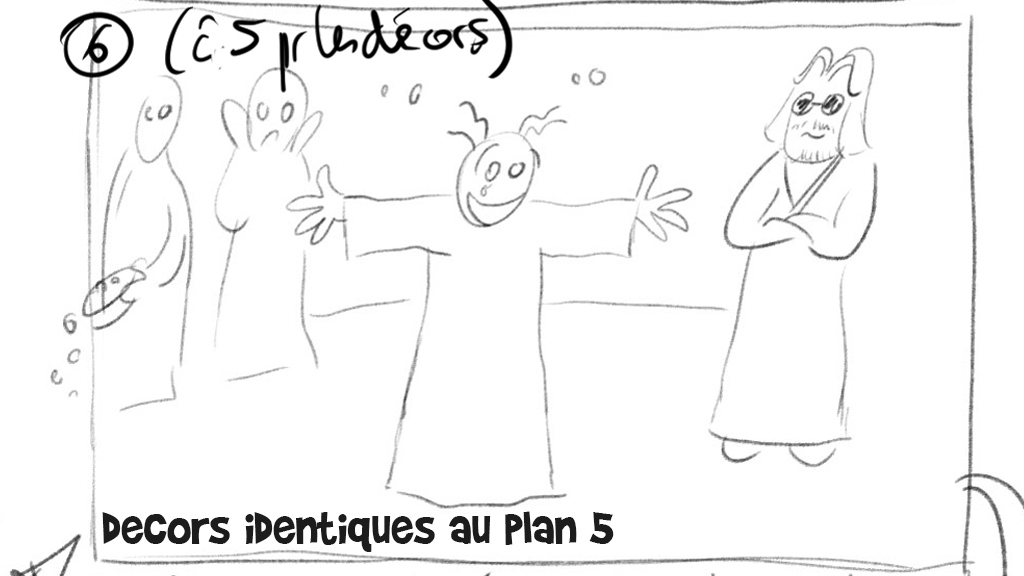 6 (c 5 pr les décors)
DECORS IDENTIQUES AU PLAN 5